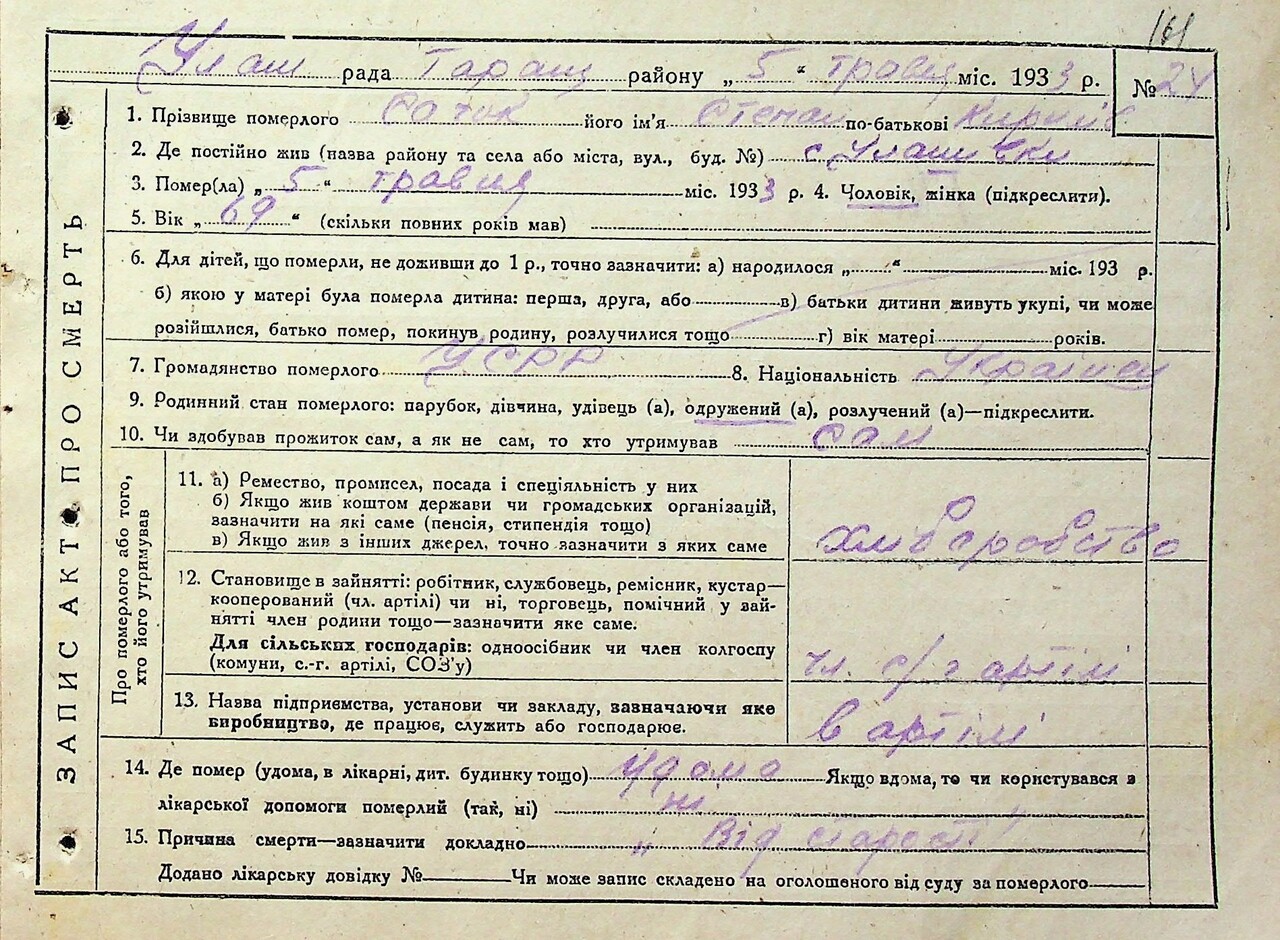 161
Улаш рада Таращ району „ 5 “ травня міс. 1933 р. № 24
ЗАПИС АКТ ПРО СМЕРТЬ
1. Прізвище померлого Сачок його ім'я Степан по-батькові Кирилів
2. Де постійно жив (назва району та села або міста, вул., буд. №) с Улашівки
3. Помер(ла) „ 5 “ травня міс. 1933 р. 4. Чоловік, жінка (підкреслити).
5. Вік „ 69 “ (скільки повних років мав)
6. Для дітей, що померли, не доживши до 1 р., точно зазначити: а) народилося „ “ міс. 193 р.
б) якою у матері була померла дитина: перша, друга, або в) батьки дитини живуть укупі, чи може
розійшлися, батько помер, покинув родину, розлучилися тощо г) вік матері років.
7. Громадянство померлого УСРР 8. Національність Українец
9. Родинний стан померлого: парубок, дівчина, удівець (а), одружений (а), розлучений (а)—підкреслити.
10. Чи здобував прожиток сам, а як не сам, то хто утримував сам
Про померлого або того,
хто його утримував
11. а) Ремество, промисел, посада і спеціяльність у них
б) Якщо жив коштом держави чи громадських організацій,
зазначити на які саме (пенсія, стипендія тощо)
в) Якщо жив з інших джерел, точно зазначити з яких саме
хліборобство
12. Становище в зайнятті: робітник, службовець, ремісник, кустар—
кооперований (чл. артілі) чи ні, торговець, помічний у зай-
нятті член родини тощо—зазначити яке саме.
Для сільських господарів: одноосібник чи член колгоспу
(комуни, с.-г. артілі, СОЗ'у)
чл. с/г артілі
13. Назва підприємства, установи чи закладу, зазначаючи яке
виробництво, де працює, служить або господарює.
в артілі
14. Де помер (удома, в лікарні, дит. будинку тощо) удома Якщо вдома, то чи користувався з
лікарської допомоги померлий (так, ні) ні
15. Причина смерти—зазначити докладно „ Від старості "
Додано лікарську довідку № Чи може запис складено на оголошеного від суду за померлого